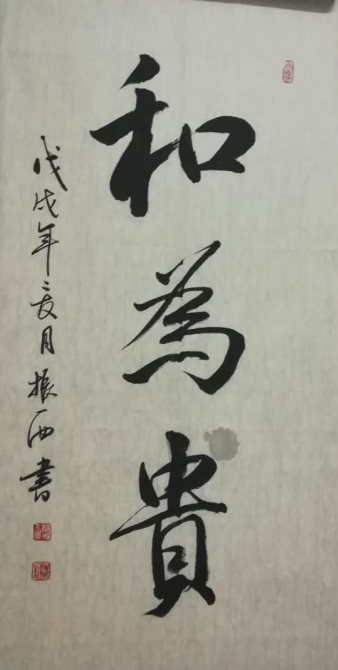 和為貴
戊戌年夏月振西書